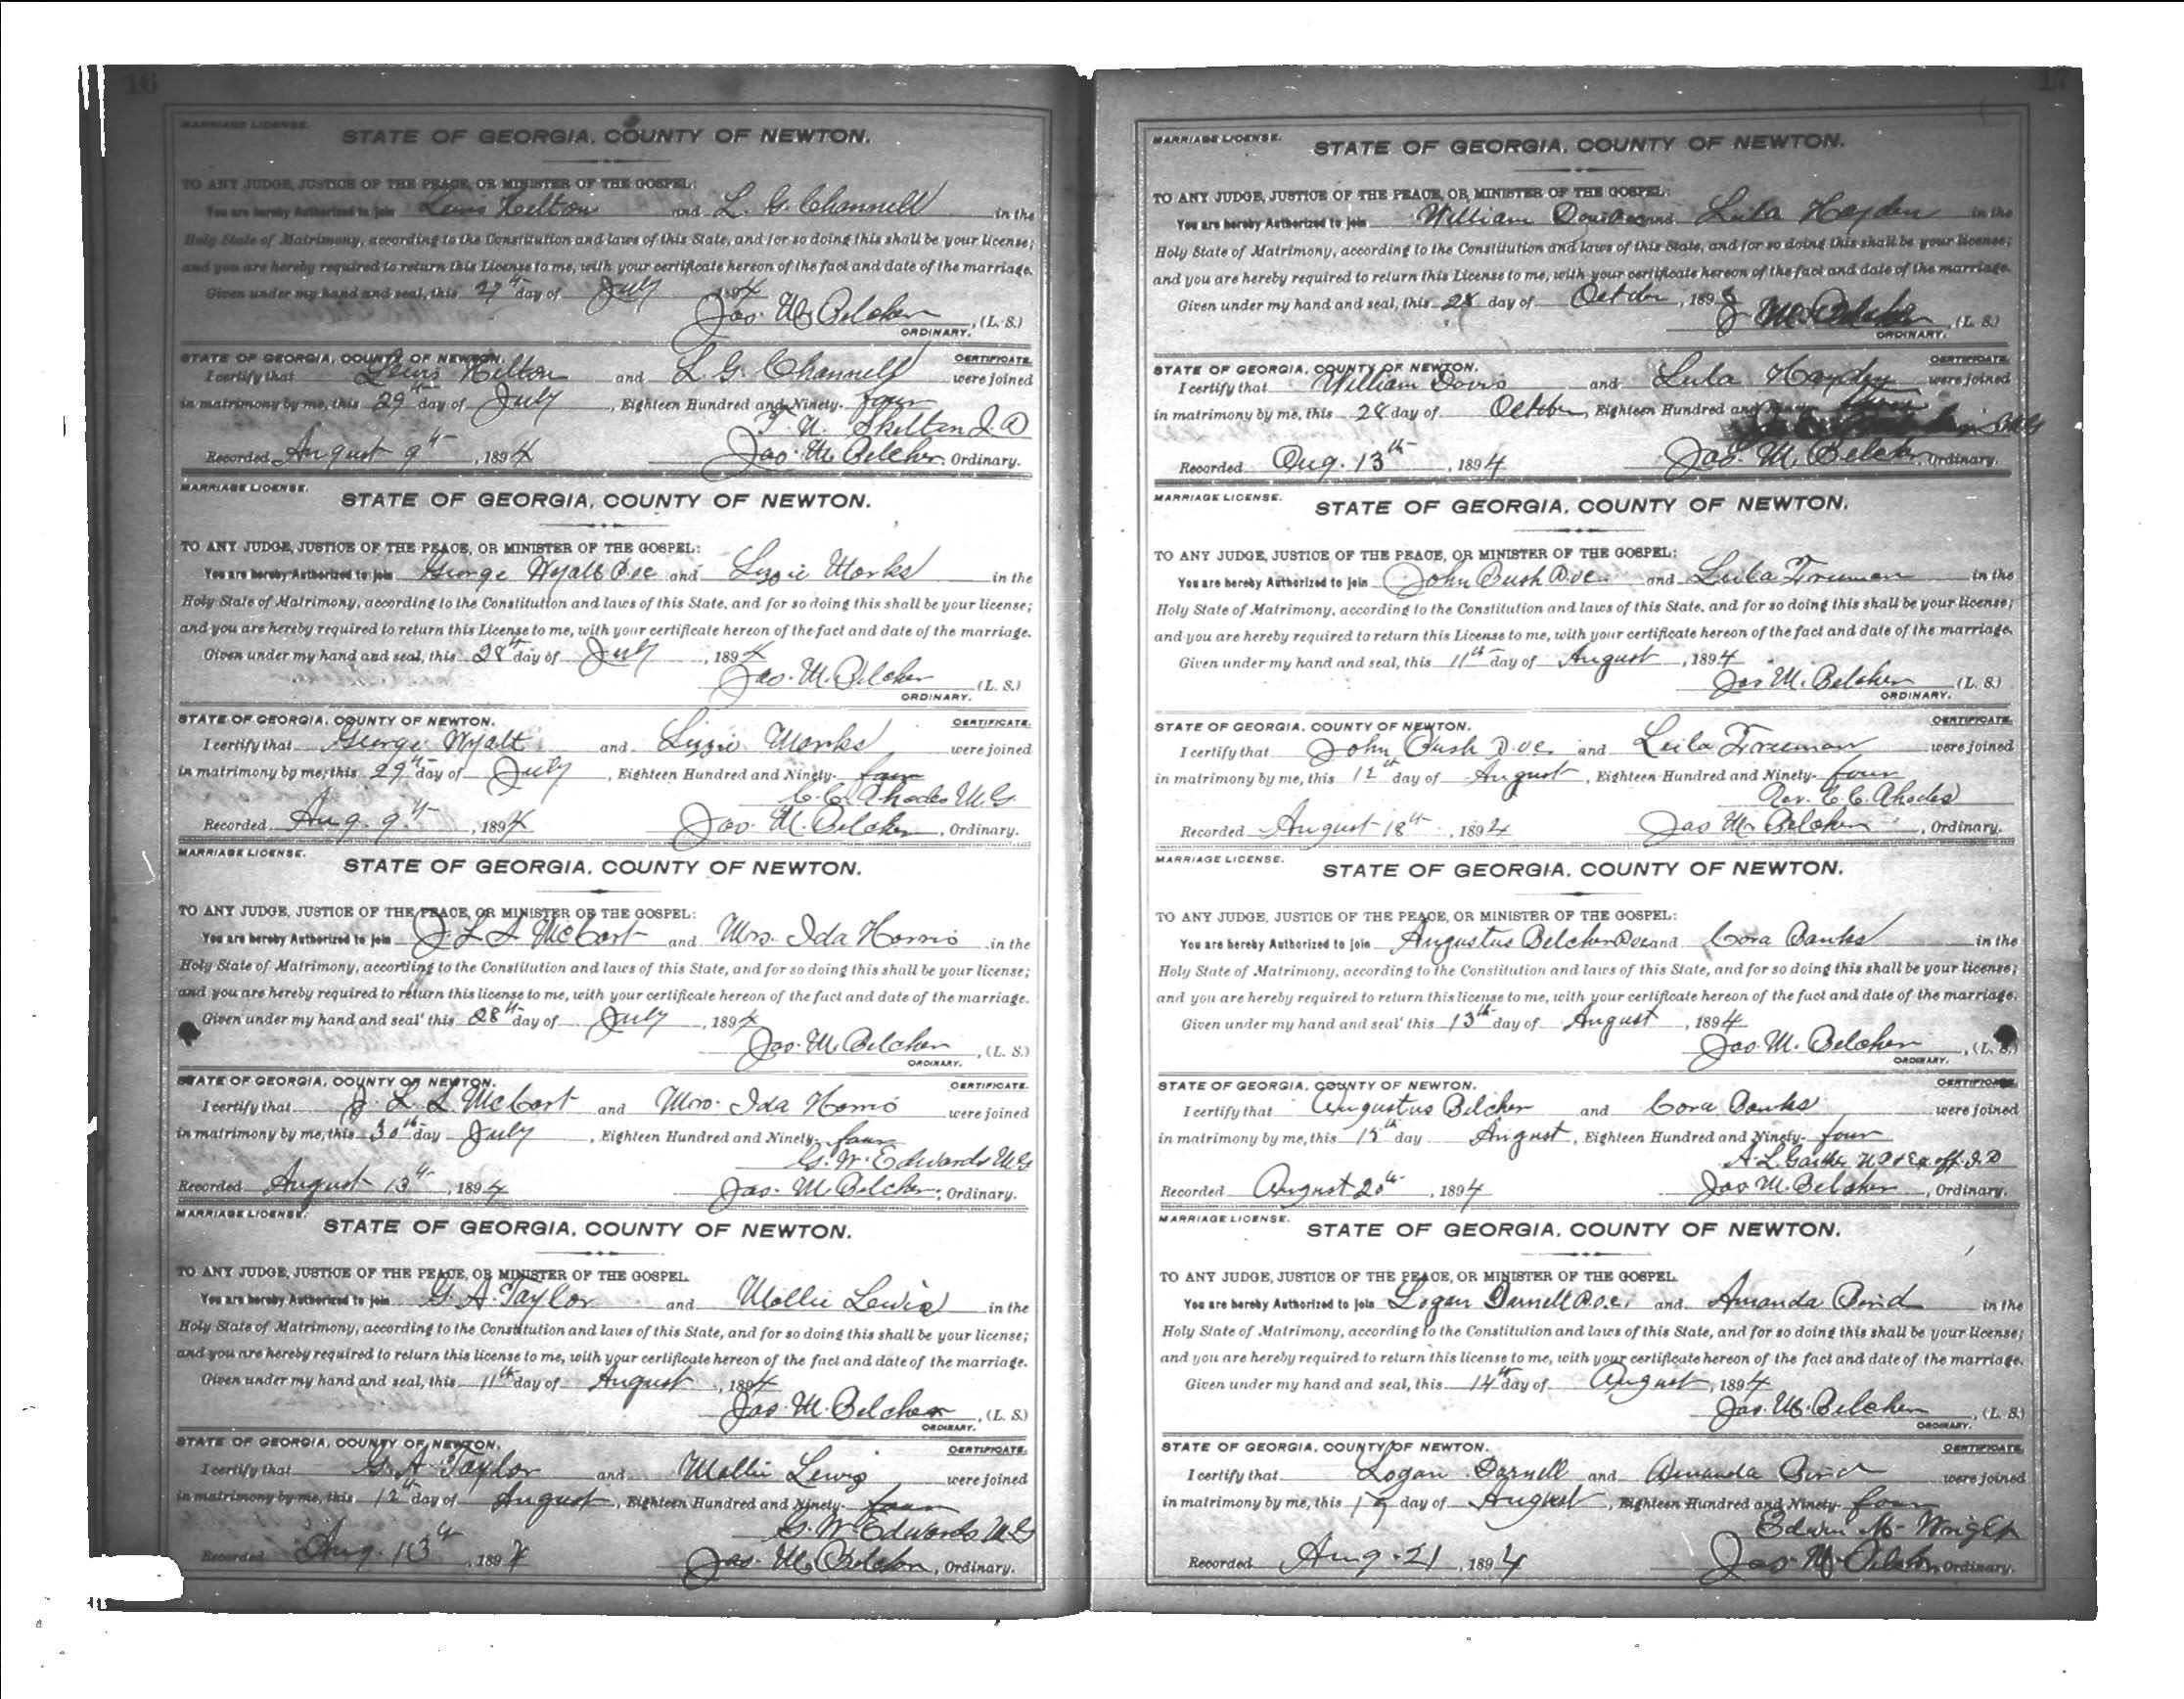 16
MARRIAGE LICENSE.
STATE OF GEORGIA, COUNTY OF NEWTON.
TO ANY JUDGE, JUSTICE OF THE PEACE, OR MINISTER OF THE GOSPEL:
You are hereby Authorized to join Lewis Helton and L. G. Channell in the
Holy State of Matrimony, according to the Constitution and laws of this State, and for so doing this shall be your license;
and you are hereby required to return this License to me, with your certificate hereon of the fact and date of the marriage.
Given under my hand and seal, this 27th day of July 1894
Jas. M. Belcher, (L. S.)
ORDINARY.
STATE OF GEORGIA, COUNTY OF NEWTON. CERTIFICATE.
I certify that Lewis Hilton and L. G. Channell were joined
in matrimony by me, this 29th day of July, Eighteen Hundred and Ninety-four
Skelton
Recorded August 9th, 1894 Jas. M. Belcher, Ordinary.
MARRIAGE LICENSE.
STATE OF GEORGIA, COUNTY OF NEWTON.
TO ANY JUDGE, JUSTICE OF THE PEACE, OR MINISTER OF THE GOSPEL:
You are hereby Authorized to join George Wyatt and Lizzie Marks in the
Holy State of Matrimony, according to the Constitution and laws of this State, and for so doing this shall be your license;
and you are hereby required to return this License to me, with your certificate hereon of the fact and date of the marriage.
Given under my hand and seal, this 28th day of July, 1894
Jas. M. Belcher (L. S.)
ORDINARY.
STATE OF GEORGIA, COUNTY OF NEWTON. CERTIFICATE.
I certify that George Wyatt and Lizzie Marks were joined
in matrimony by me, this 29th day of July, Eighteen Hundred and Ninety-four
C. C. Rhodes M. G.
Recorded Aug. 9th, 1894 Jas. M. Belcher, Ordinary.
MARRIAGE LICENSE.
STATE OF GEORGIA, COUNTY OF NEWTON.
TO ANY JUDGE, JUSTICE OF THE PEACE, OR MINISTER OF THE GOSPEL:
You are hereby Authorized to join J. L. L. McCort and Mrs. Ida Harris in the
Holy State of Matrimony, according to the Constitution and laws of this State, and for so doing this shall be your license;
and you are hereby required to return this license to me, with your certificate hereon of the fact and date of the marriage.
Given under my hand and seal this 28th day of July, 1894
Jas. M. Belcher, (L. S.)
ORDINARY.
STATE OF GEORGIA, COUNTY OF NEWTON. CERTIFICATE.
I certify that J. L. L. McCort and Mrs. Ida Harris were joined
in matrimony by me, this 30th day July, Eighteen Hundred and Ninety-four
G. W. Edwards M. G.
Recorded August 13th, 1894 Jas. M. Belcher, Ordinary.
MARRIAGE LICENSE.
STATE OF GEORGIA, COUNTY OF NEWTON.
TO ANY JUDGE, JUSTICE OF THE PEACE, OR MINISTER OF THE GOSPEL.
You are hereby Authorized to join G. A. Taylor and Mollie Lewis in the
Holy State of Matrimony, according to the Constitution and laws of this State, and for so doing this shall be your license;
and you are hereby required to return this license to me, with your certificate hereon of the fact and date of the marriage.
Given under my hand and seal, this 11th day of August, 1894
Jas. M. Belcher, (L. S.)
ORDINARY.
STATE OF GEORGIA, COUNTY OF NEWTON. CERTIFICATE.
I certify that G. A. Taylor and Mollie Lewis were joined
in matrimony by me, this 12th day of August, Eighteen Hundred and Ninety-four
G. W. Edwards M. G.
Recorded Aug. 13th, 1894 Jas. M. Belcher, Ordinary.
17
MARRIAGE LICENSE.
STATE OF GEORGIA, COUNTY OF NEWTON.
TO ANY JUDGE, JUSTICE OF THE PEACE, OR MINISTER OF THE GOSPEL:
You are hereby Authorized to join William and Lula Hayden in the
Holy State of Matrimony, according to the Constitution and laws of this State, and for so doing this shall be your license;
and you are hereby required to return this License to me, with your certificate hereon of the fact and date of the marriage.
Given under my hand and seal, this 28 day of October, 189
J M. Belcher, (L. S.)
ORDINARY.
STATE OF GEORGIA, COUNTY OF NEWTON. CERTIFICATE.
I certify that William Davis and Lula Hayden were joined
in matrimony by me, this 28 day of October, Eighteen Hundred and Ninety
Recorded Aug. 13th, 1894 Jas. M. Belcher, Ordinary.
MARRIAGE LICENSE.
STATE OF GEORGIA, COUNTY OF NEWTON.
TO ANY JUDGE, JUSTICE OF THE PEACE, OR MINISTER OF THE GOSPEL:
You are hereby Authorized to join John Bush and Leila Freeman in the
Holy State of Matrimony, according to the Constitution and laws of this State, and for so doing this shall be your license;
and you are hereby required to return this License to me, with your certificate hereon of the fact and date of the marriage.
Given under my hand and seal, this 11th day of August, 1894
Jas M. Belcher (L. S.)
ORDINARY.
STATE OF GEORGIA, COUNTY OF NEWTON. CERTIFICATE.
I certify that John Bush and Leila Freeman were joined
in matrimony by me, this 12th day of August, Eighteen Hundred and Ninety-four
Rev. C. C. Rhodes
Recorded August 18th, 1894 Jas M. Belcher, Ordinary.
MARRIAGE LICENSE.
STATE OF GEORGIA, COUNTY OF NEWTON.
TO ANY JUDGE, JUSTICE OF THE PEACE, OR MINISTER OF THE GOSPEL:
You are hereby Authorized to join Augustus Belcher and Cora Banks in the
Holy State of Matrimony, according to the Constitution and laws of this State, and for so doing this shall be your license;
and you are hereby required to return this license to me, with your certificate hereon of the fact and date of the marriage.
Given under my hand and seal this 13th day of August, 1894
Jas M. Belcher, (L. S.)
ORDINARY.
STATE OF GEORGIA, COUNTY OF NEWTON. CERTIFICATE.
I certify that Augustus Belcher and Cora Banks were joined
in matrimony by me, this 15th day August, Eighteen Hundred and Ninety-four
A. L.
Recorded August 20th, 1894 Jas M. Belcher, Ordinary.
MARRIAGE LICENSE.
STATE OF GEORGIA, COUNTY OF NEWTON.
TO ANY JUDGE, JUSTICE OF THE PEACE, OR MINISTER OF THE GOSPEL.
You are hereby Authorized to join Logan Darnell and Amanda Bird in the
Holy State of Matrimony, according to the Constitution and laws of this State, and for so doing this shall be your license;
and you are hereby required to return this license to me, with your certificate hereon of the fact and date of the marriage.
Given under my hand and seal, this 14th day of August, 1894
Jas. M. Belcher, (L. S.)
ORDINARY.
STATE OF GEORGIA, COUNTY OF NEWTON. CERTIFICATE.
I certify that Logan Darnell and Amanda Bird were joined
in matrimony by me, this day of August, Eighteen Hundred and Ninety-four
Edwin M. Wright
Recorded Aug. 21, 1894 Jas M. Belcher, Ordinary.